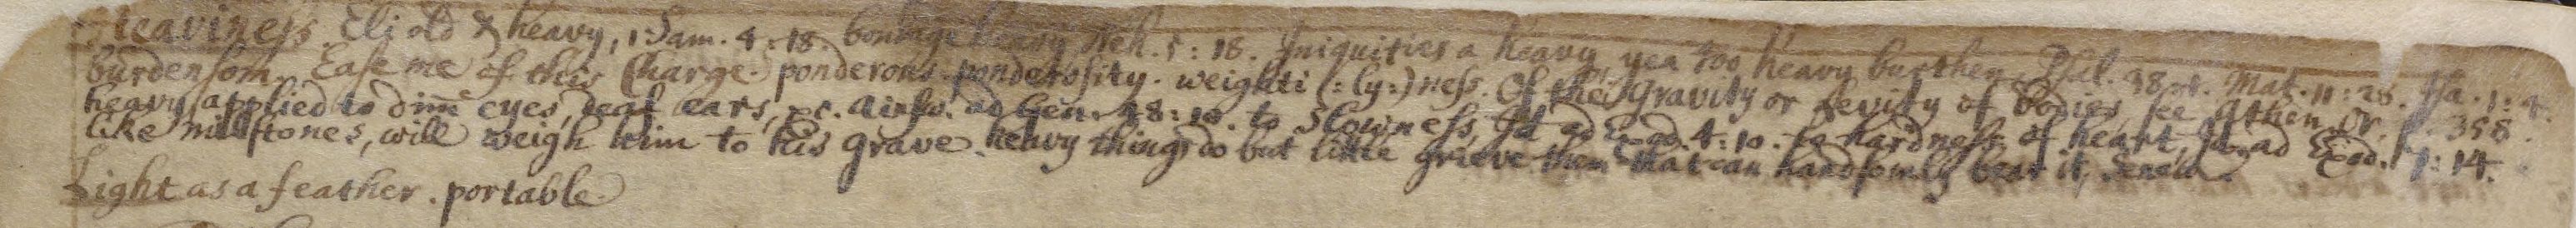 Heaviness. Eli old & heavy, 1 Sam. 4:18. bondage heavy Neh. 5:18. Iniquities a heavy yea too heavy burthen, Psal. 38.4. Mat. 11:28. Isa. 1:4.
burdensom. Ease me of this Charge. ponderous. ponderosity. weighti (:ly:) ness. Of the Gravity or Levity of bodies, see Athen. Or. 358.
heavy applied to dim̄e eyes, deaf ears, &c. Ainsw. ad Gen. 48:10. to Slowness, Id. ad Exod. 4:10. to hardness of heart, Id. ad Exod. 7:14.
like millstones, will weigh him to his grave. heavy things do but little grieve them that can handsomly bear it, Seneca.
Light as a feather. portable